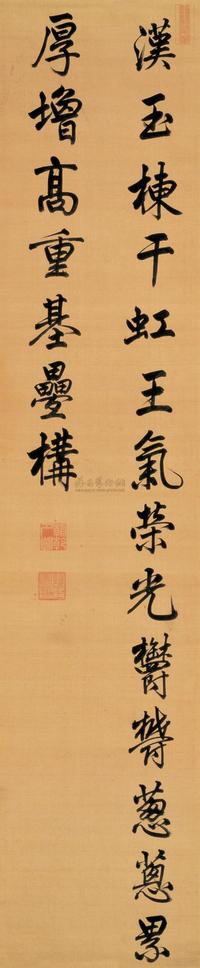 漢玉棟干虹王氣榮光欝欝葱葱累
厚增高重基疊構